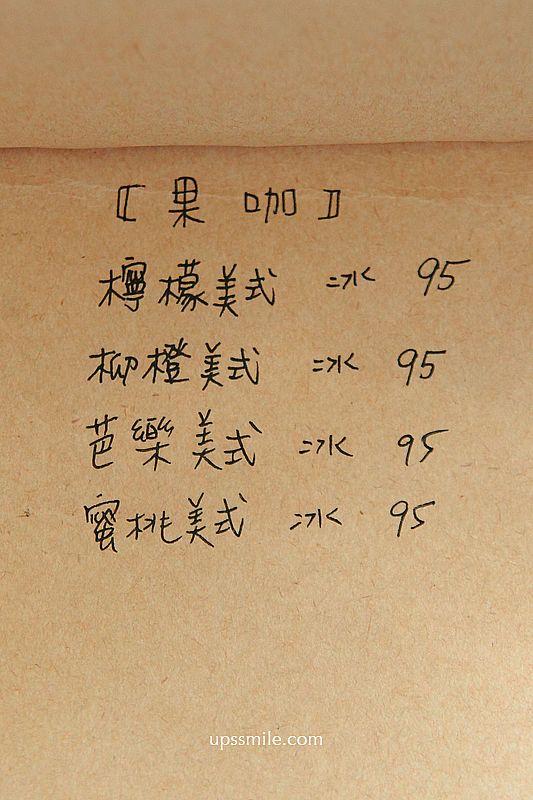 〖果咖〗
檸檬美式 冰 95
柳橙美式 冰 95
芭樂美式 冰 95
蜜桃美式 冰 95
upssmile.com